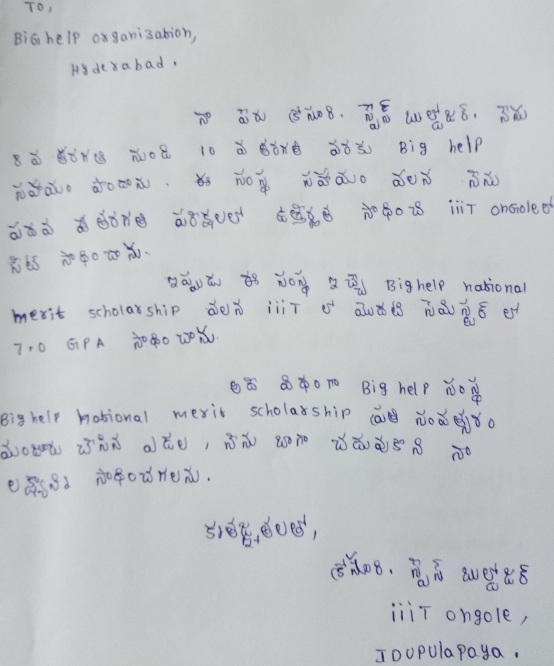 To,
Big help organization,
Hyderabad.
నా పేరు కేసూరి. స్టైన్ బుల్డోజర్. నేను
8 వ తరగతి నుండి 10 వ తరగతి వరకు Big help
సహాయం పొందాను. ఈ సంస్థ సహాయం వలన నేను
పదవ తరగతి పరీక్షలలో ఉత్తీర్ణత సాధించి iiiT ongole లో
సీట్ సాధించాను.
ఇప్పుడు ఈ సంస్థ ఇచ్చే Big help national
merit scholarship వలన iiiT లో మొదటి సెమిస్టర్ లో
7.0 GPA సాధించాను.
అదే విధంగా Big help సంస్థ
Big help national merit scholarship ప్రతి సంవత్సరం
మంజూరు చేసిన ఎడల, నేను బాగా చదువుకొని నా
లక్ష్యాన్ని సాధించగలను.
కృతజ్ఞతలతో,
బుల్డోజర్
iiiT ongole,
IDUPULAPAYA.